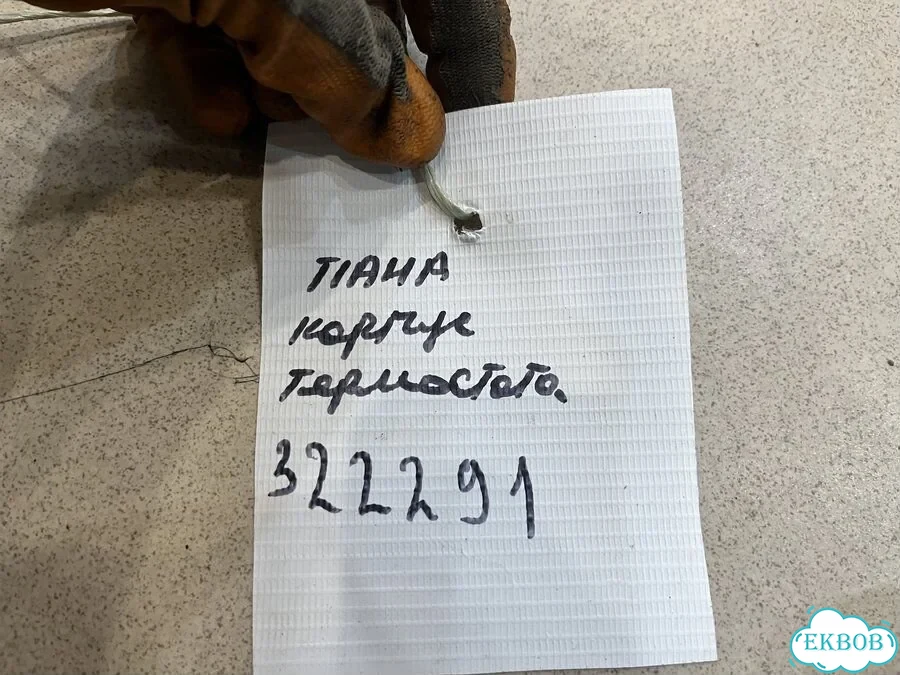 ТІАНА
корпус
термостата
322291
EKBOB